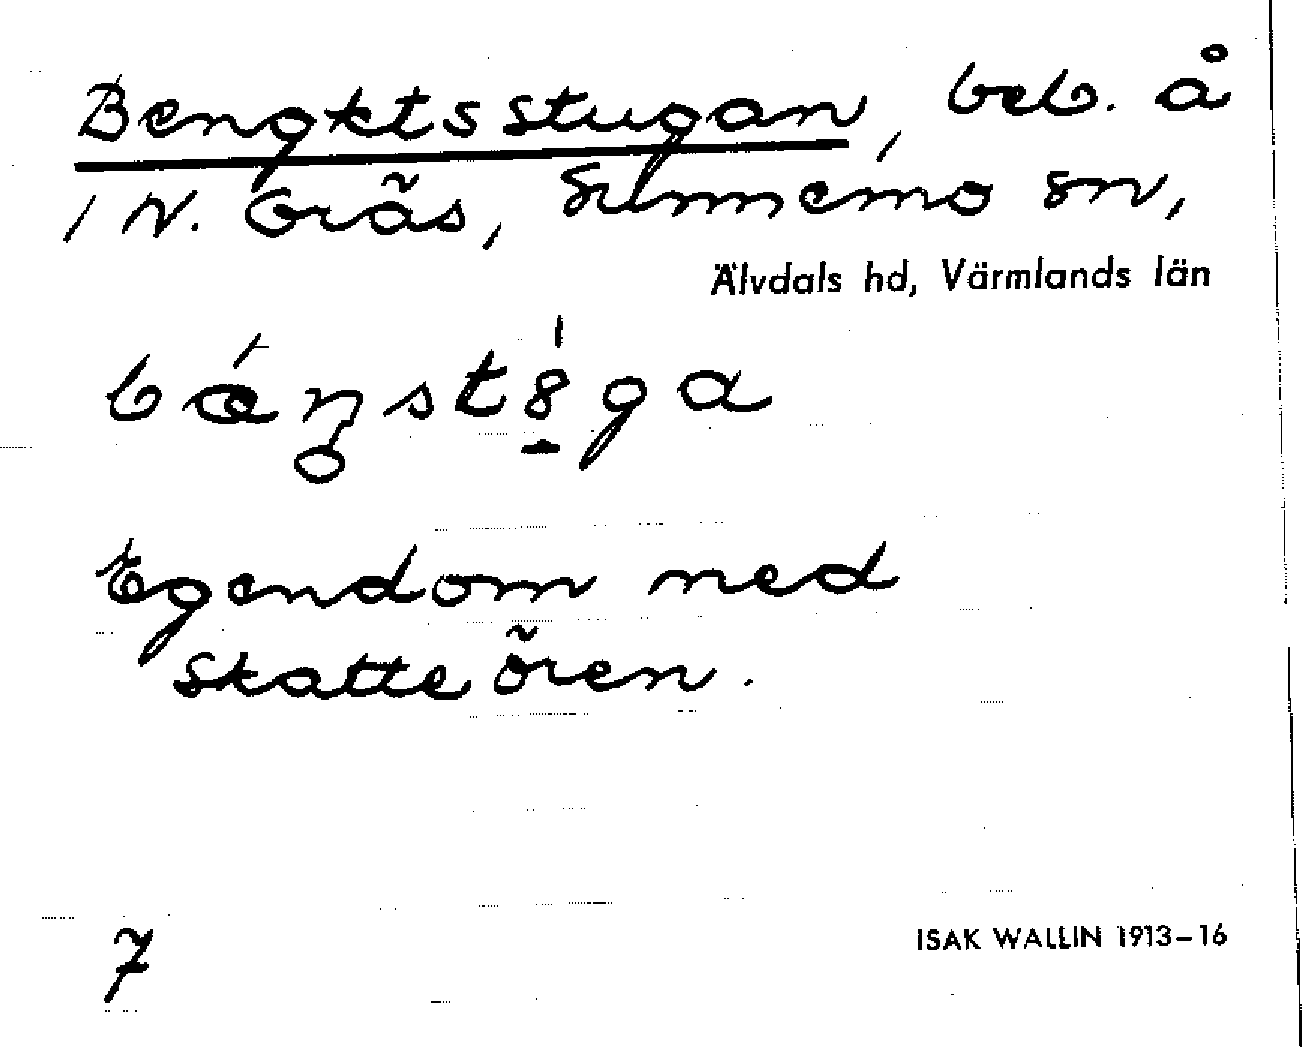 Bengktsstugan, beb. å
/ N. Gräs, Sunnemo sn,
Älvdals hd, Värmlands län
Egendom med
skatteören.
7
ISAK WALLIN 1913–16